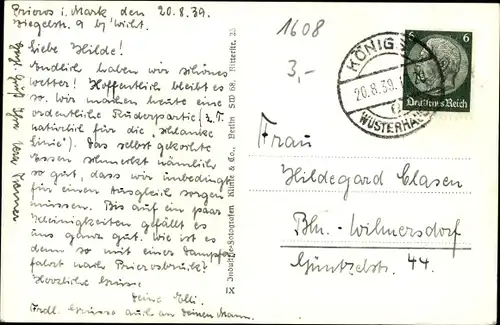 Prieros i. Mark den 20.8.39.
Ziegelstr. 9 b/ Wicht.
Liebe Hilde!
Endlich haben wir schönes
Wetter! Hoffentlich bleibt es
so. Wir machen heute eine
ordentliche Ruderpartie (z.T.
natürlich für die "schlanke
Linie"). Das selbst gekochte
Essen schmeckt nämlich
so gut, dass wir unbedingt
für einen Ausgleich sorgen
müssen. Bis auf ein paar
Kleinigkeiten gefällt es
uns ganz gut. Wie ist es
denn so mit einer Dampfer-
fahrt nach Prierosbrück?
Herzliche Grüsse
Deine Elli.
Frdl. Grüsse auch an Deinen Mann.
Gruß Ihr
Industrie-Fotografen Klinke & Co., Berlin SW 68, Ritterstr. 23
IX
1608
3,-
KÖNIGS
20.8.39.
WUSTERHAUSEN
6 6
Deutsches Reich
Frau
Hildegard Clasen
Bln.-Wilmersdorf
Güntzelstr. 44.